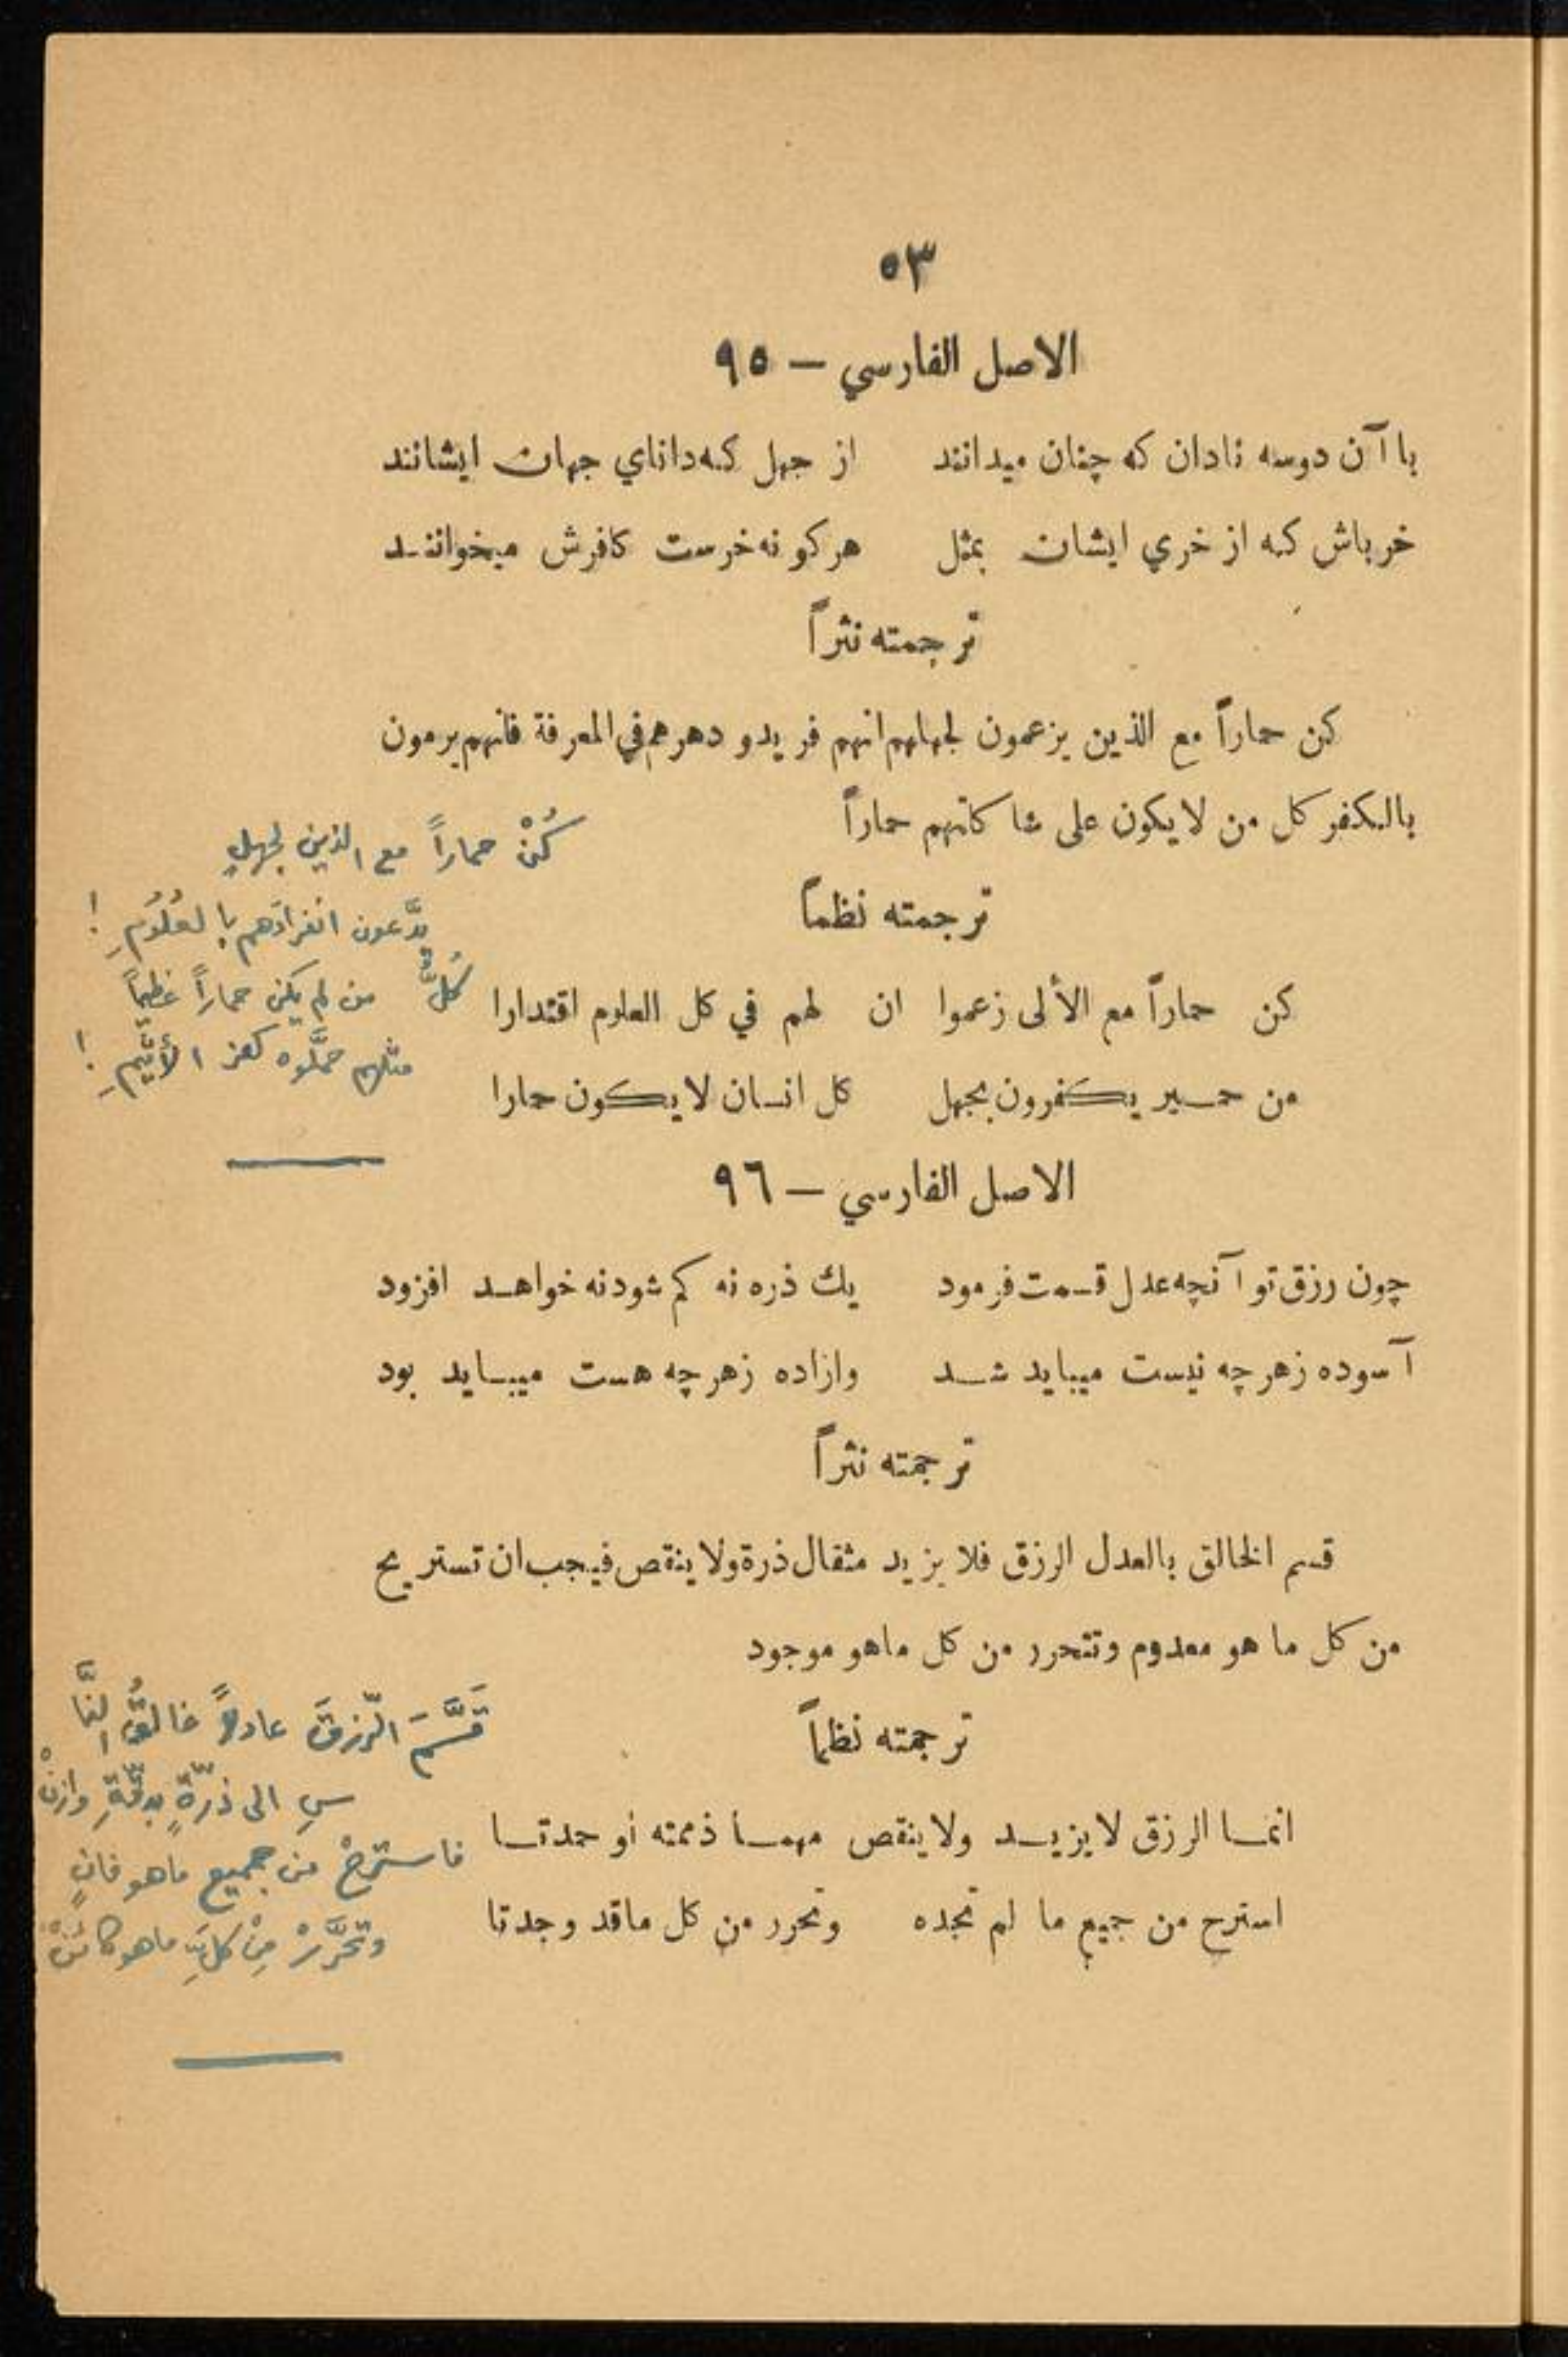 ٥٣
الاصل الفارسي — ٩٥
با آن دوسه نادان که چنان میدانند از جهل که داناي جهان ایشانند
خر باش که از خري ایشان بمثل هر کو نه خرست کافرش میخوانند
ترجمته نثراً
كن حماراً مع الذين يزعمون لجهلهم انهم فريدو دهرهم في المعرفة فانهم يرمون
بالكفر كل من لا يكون على شاكلتهم حماراً
ترجمته نظماً
كن حماراً مع الألى زعموا ان لهم في كل العلوم اقتدارا
من حمير يكفرون بجهل كل انسان لا يكون حمارا
كُنْ حماراً مع الذين لجهلٍ
يدَّعون انفرادَهم بالعُلُومِ !
كُلُّ من لم يكن حماراً عظيماً
مثلهم حمَّلوه كفر الأثيمِ !
الاصل الفارسي — ٩٦
چون رزق تو آنچه عدل قسمت فرمود یك ذره نه کم شود نه خواهد افزود
آسوده زهر چه نیست میباید شد وازاده زهر چه هست میباید بود
ترجمته نثراً
قسم الخالق بالعدل الرزق فلا يزيد مثقال ذرة ولا ينقص فيجب ان تستريح
من كل ما هو معدوم وتتحرر من كل ماهو موجود
ترجمته نظماً
انما الرزق لا يزيد ولا ينقص مهما ذممته أو حمدتا
استرح من جميع ما لم تجده وتحرر من كل ماقد وجدتا
قَسَّمَ الرّزقَ عادلاً خالقُ النَّا
سِ الى ذرّةٍ بدقّةِ وازنْ
فاسترحْ من جميع ماهو فانٍ
وتحرَّرْ مِنْ كلِّ ماهو كائنْ